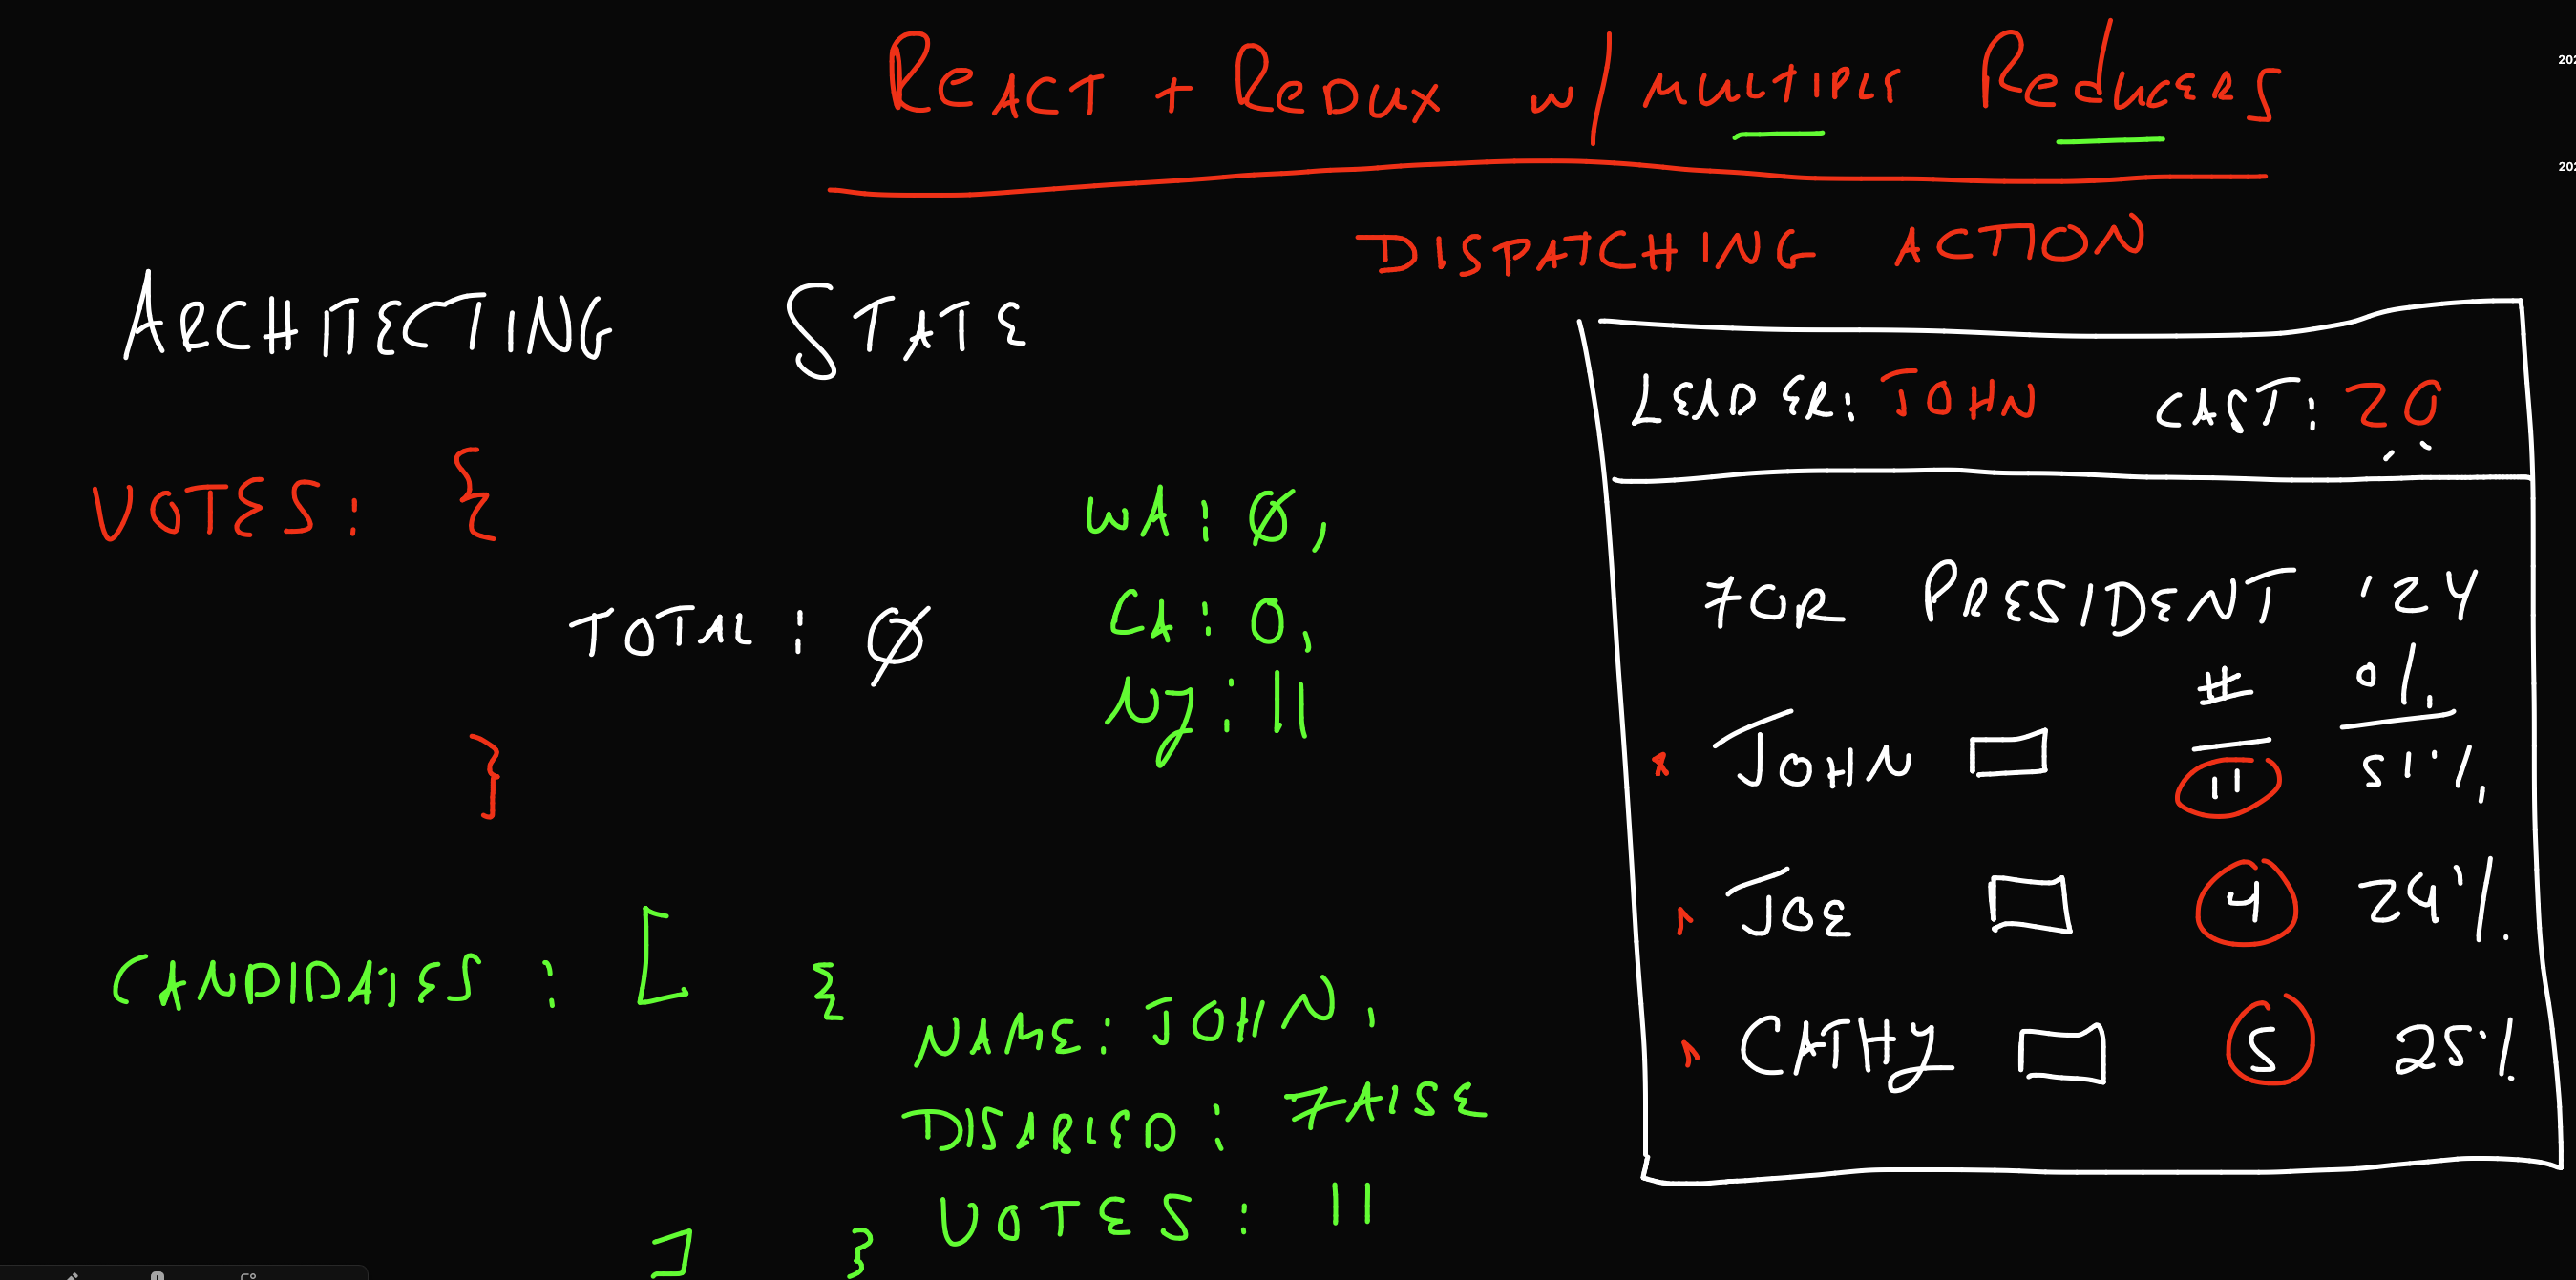 REACT + REDUX w/ MULTIPLE REDUCERS
DISPATCHING ACTION
ARCHITECTING STATE
VOTES: {
TOTAL: Ø
}
WA: Ø,
CA: 0,
NJ: 11
CANDIDATES: [ {
NAME: JOHN,
DISABLED: FALSE
VOTES: 11
] }
LEADER: JOHN CAST: 20
FOR PRESIDENT '24
# %
JOHN 11 51%
JOE 4 24%
CATHY 5 25%
202
202